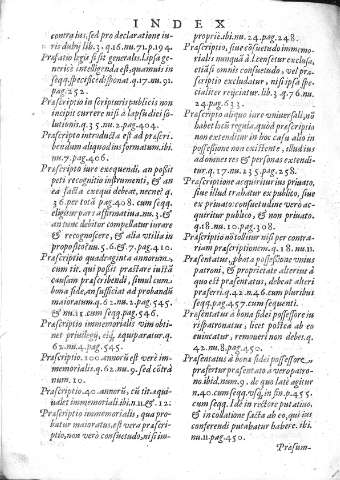 INDEX
contra ius, sed pro declaratione iu-
ris dubij lib. 3. q. 16. nu. 71. p. 194.
Præfatio legis si sit generalis. Ipsa ge-
nericè intelligenda est, quamuis in
seqq. specificè disponat. q. 17. nu. 91.
pag. 252.
Præscriptio in scripturis publicis non
incipit currere nisi à lapsu diei so-
lutionis. q. 35. nu. 2. pag. 404.
Præscriptio introducta est ad præscri-
bendum aliquod ius formatum. ibi.
nu. 7. pag. 406.
Præscriptio iure exequendi, an possit
peti recognitio instrumenti, & an
ea facta exequi debeat, necne? q.
36. per totā pag. 408. cum seqq.
eligitur pars affirmatiua. nu. 3. &
an tunc debitor compellatur iurare
& recognoscere, & alia vtilia in
proposito? nu. 5. 6. & 7. pag. 410.
Præscriptio quadraginta annorum,
cum tit. qui possit præstare iustā
causam præscribendi, simul cum
bona fide, an sufficiat ad probandū
maioratum. q. 62. nu. 2. pag. 545.
& nu. 11. cum seqq. pag. 546.
Præscriptio immemorialis vim obti-
net priuilegij, eiq́; æquiparatur. q.
62. nu. 4. pag. 545.
Præscriptio. 100. annorū est verè im-
memorialis. q. 62. nu. 9. sed cōtrà
num. 10.
Præscriptio. 40. annorū, cū tit. æqui-
ualet immemoriali ibi. n. 11. & 12.
Præscriptio immemorialis, qua pro-
batur maioratus, est vera præscri-
ptio, non verò consuetudo, nisi im-
propriè. ibi. nu. 24. pag. 248.
Præscriptio, siue consuetudo immemo-
rialis nunquā à l. censetur exclusa,
etiā si omnis consuetudo, vel præ-
scriptio excludatur, nisi ea specia-
liter reijciatur. lib. 3. q. 76. nu.
24. pag. 633.
Præscriptio aliquo iure vniuersali, nō
habet locū regula, quòd præscriptio
non extenditur in hoc casu alio in
possessione non existente, illud ius
ad omnes res & personas extendi-
tur. q. 17. nu. 235. pag. 258.
Præscriptione acquiritur ius priuato,
siue illud trahatur ex publico, siue
ex priuato: consuetudine verò ac-
quiritur publico, & non priuato.
q. 18. nu. 10. pag. 308.
Præscriptio nō tollitur nisi per contra-
riam præscriptionem. q. 18. nu. 11.
Præsentatus, pbata possessione vnius
patroni, & proprietate alterius à
quo est præsentatus, debeat alteri
præferri. q. 42. n. 46. cum pluribus
seqq. pag. 457. cum sequenti.
Præsentatus à bonæ fidei possessore iu-
ris patronatus, licet postea ab eo
euincatur, remoueri non debet. q.
42. nu. 8. pag. 450.
Præsentatus à bonæ fidei possessore,
præfertur præsentato à vero patro-
no. ibid. num. 9. de quo latè agitur
n. 40. cum seqq. vsq́; in fin. p. 455.
cum seqq. Idē in rectore putatiuo,
& in collatione facta ab eo, qui ius
conferendi putabatur habere. ibi.
nu. 11. pag. 450.
Præsum-